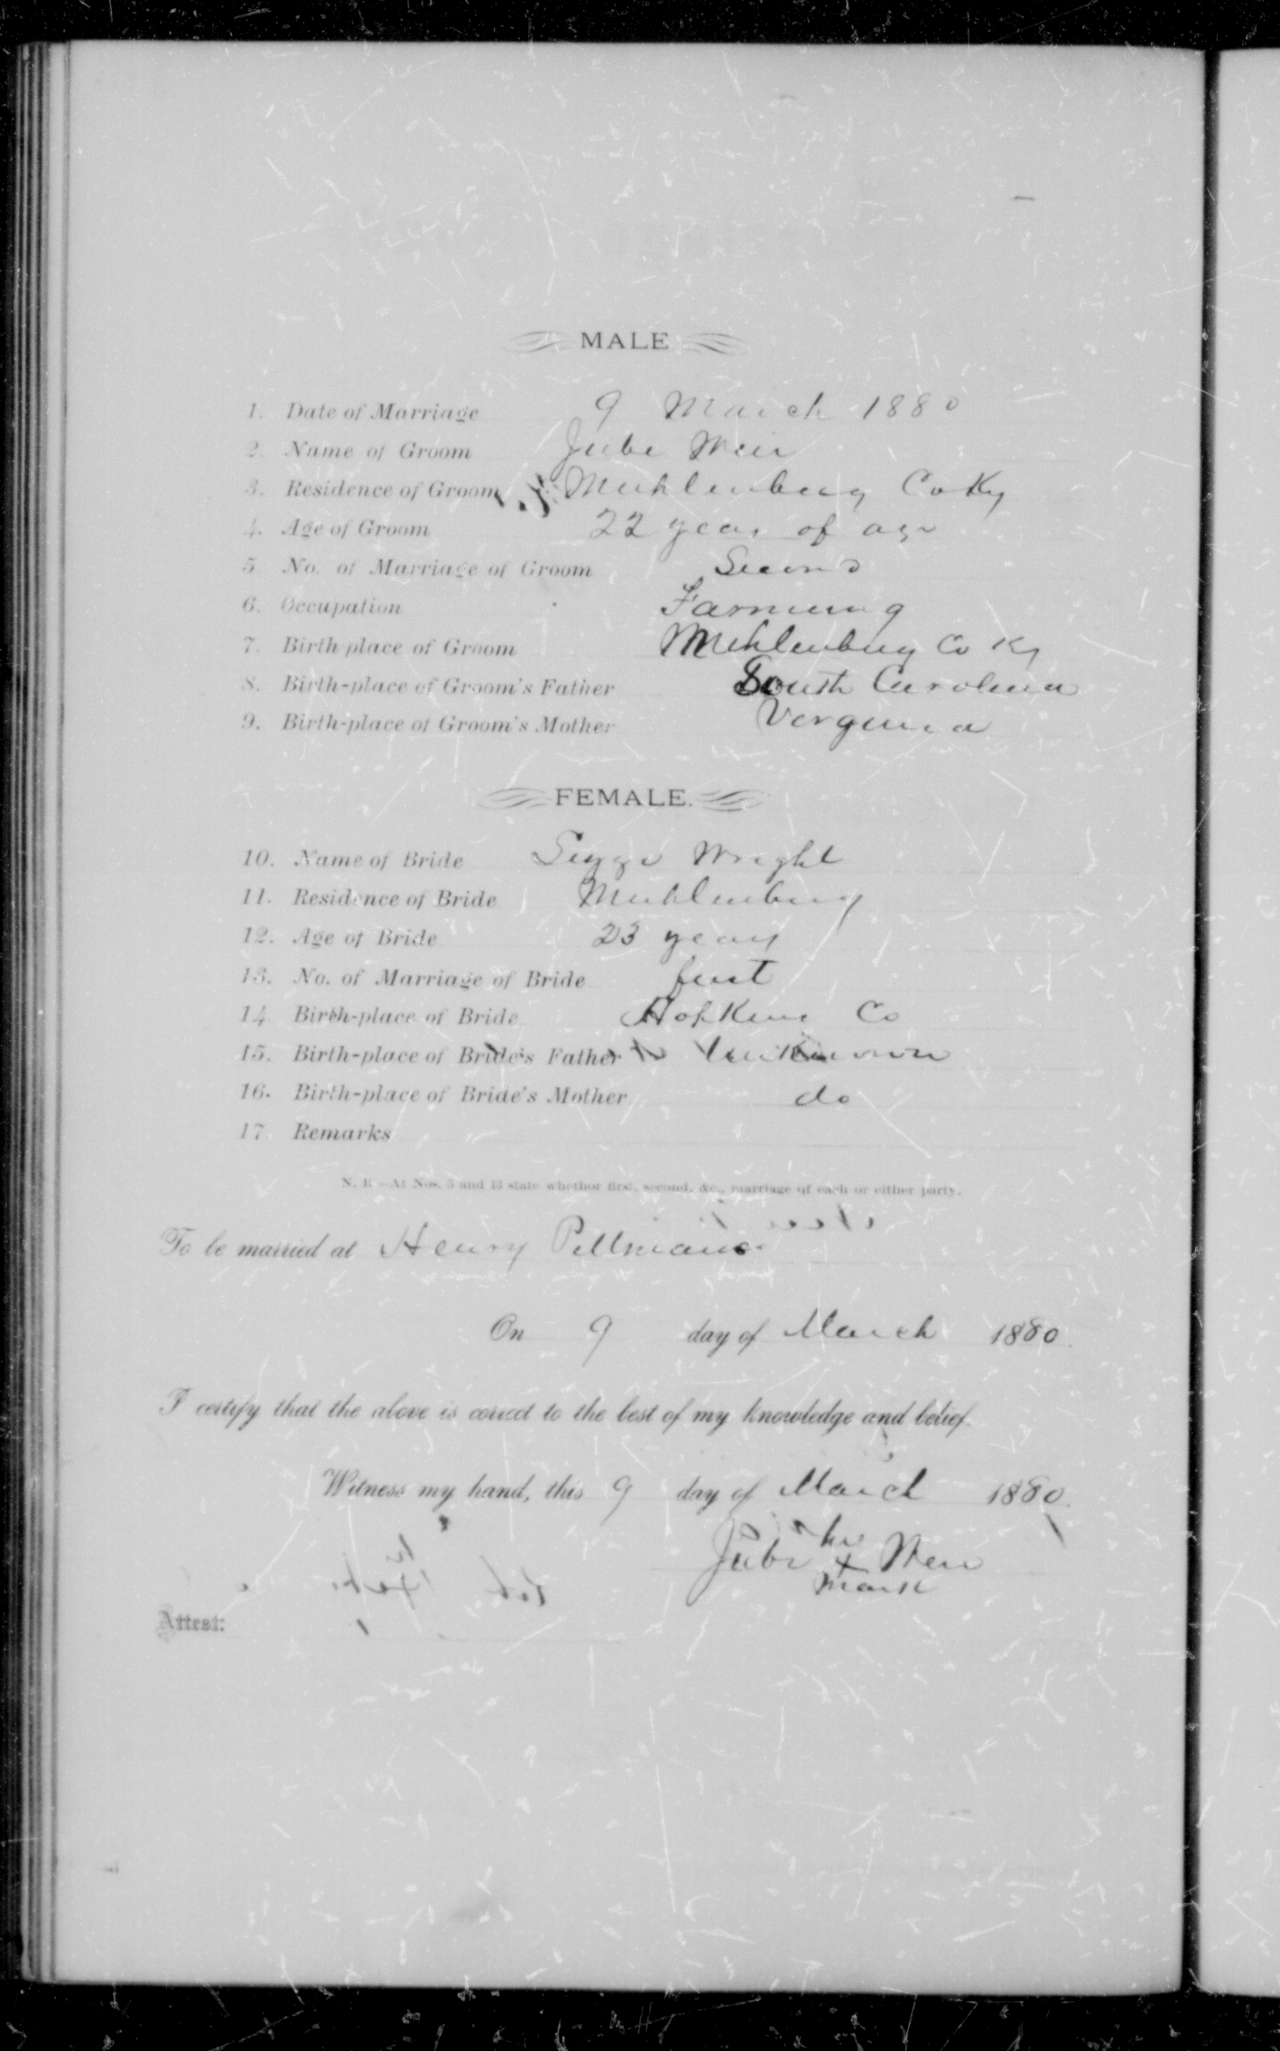 MALE
1. Date of Marriage 9 March 1880
2. Name of Groom Jube Weir
3. Residence of Groom Muhlenburg Co Ky
4. Age of Groom 22 years of age
5 No. of Marriage of Groom Second
6. Occupation Farming
7. Birth place of Groom Muhlenburg Co Ky
8. Birth-place of Groom's Father South Carolina
9. Birth-place of Groom's Mother Verginia
FEMALE.
10. Name of Bride Wright
11. Residence of Bride Muhlenburg
12. Age of Bride 23 years
13. No. of Marriage of Bride first
14 Birth-place of Bride Hopkins Co
15. Birth-place of Bride's Father Unknown
16. Birth-place of Bride's Mother do
17. Remarks
N. B.—At Nos. 5 and 13 state whether first, second, &c., marriage of each or either party.
To be married at Henry Pittmans
On 9 day of March 1880.
I certify that the above is correct to the best of my knowledge and belief.
Witness my hand, this 9 day of March 1880.
his
Jube x Weir
mark
Attest: